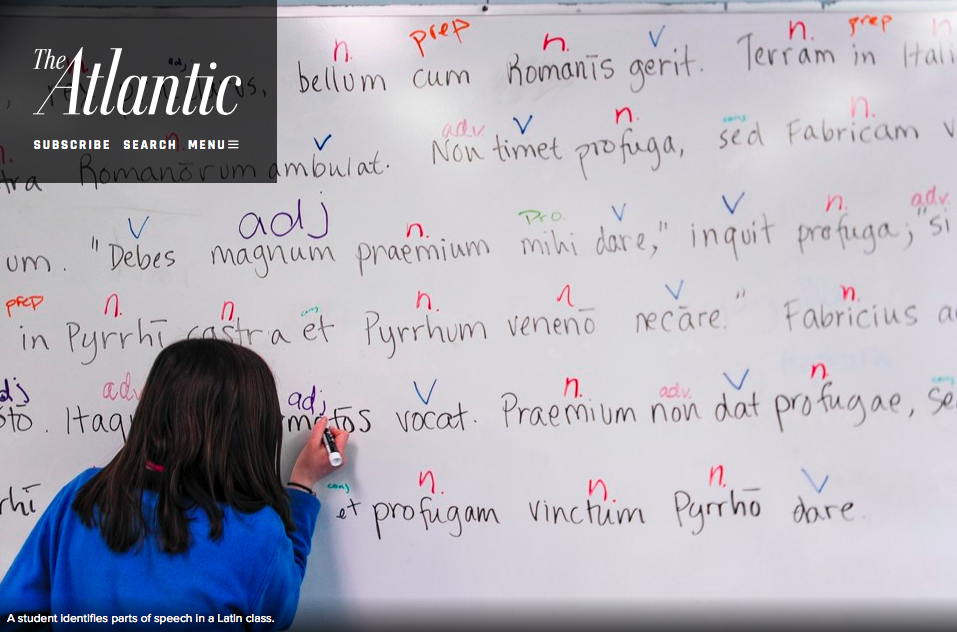 The
Atlantic
SUBSCRIBE SEARCH MENU
n. prep n. v n. prep n
bellum cum Romanīs gerit. Terram in Itali
v adv. v n. conj n.
tra Romanōrum ambulat. Non timet profuga, sed Fabricam v
v adj n. Pro. v v n. adv.
um. "Debes magnum praemium mihi dare," inquit profuga; "si
prep n. n. conj n. n v n.
in Pyrrhī castra et Pyrrhum venenō necāre." Fabricius a
dj adv adj v n. adv. v n. conj
sto. Itaq matōs vocat. Praemium non dat profugae, se
conj n. n. n. v
rhī et profugam vinctum Pyrrhō dare.
A student identifies parts of speech in a Latin class.